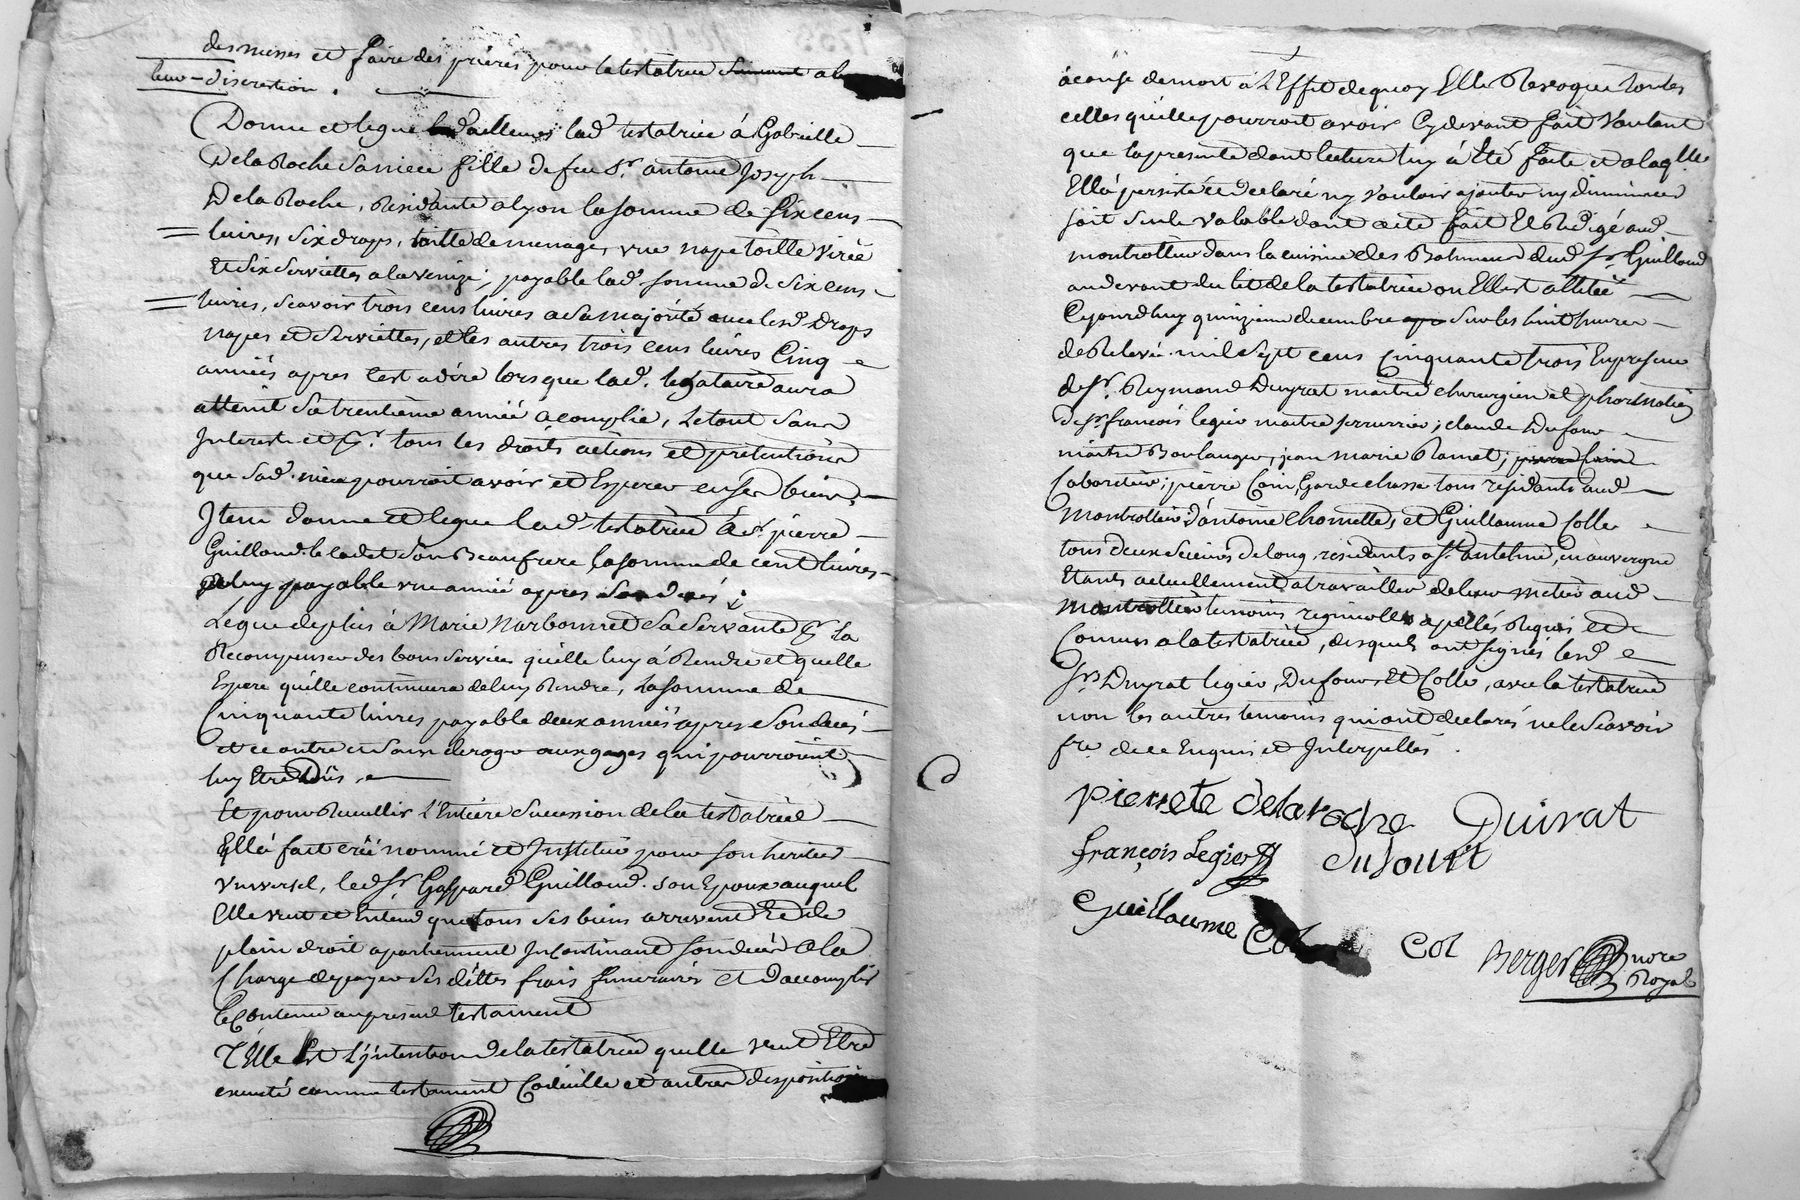 des messes et faire des prieres pour la testatrice suivant a
leur discretion.
Donne et legue d'ailleurs lad. testatrice à Gabrielle
Delaroche sa niece fille de feu Sr. antoine Joseph
Delaroche, Residante a lyon la somme de six cens
livres, six draps, toille de menage, une nape toille Virée
Et six serviettes a la venize; payable lad. somme de six cens
livres, scavoir trois cens livres a sa majorité avec lesd. draps
napes et serviettes, et les autres trois cens livres Cinq
années apres c'est a dire lorsque lad. legataire aura
atteint sa trentieme année acomplie, le tout sans
Interests et pr. tous les droits actions et pretentions
que sad. niece pourroit avoir et Esperer en ses biens.
Item donne et legue lad. testatrice à Sr. pierre
Guilloud le cadet son Beaufrere la somme de cent livres
payable une année apres son decés;
Legue de plus à Marie Narbonnet sa servante pr. la
Recompenser des bons services qu'elle luy à Rendre et quelle
Espere qu'elle continuera de luy Rendre, la somme de
Cinquante livres payable deux années apres son decés
et ce outre et sans deroger aux gages qui pourroient
luy Etre Dûs.
Et pour Recuillir l'Entiere sucession de la testatrice
Ellà fait créé nommé et Institué pour son heritier
universel, led. Sr. Gaspard Guilloud son Epoux auquel
Elle veut et Entend que tous ses biens arrivent Et de
plain droit apartiennent Incontinant son decés à la
Charge de payer ses dettes frais funeraires et d'accomplir
le Contenu au present testament
Telle Est l'jntention de la testatrice quelle veut Etre
executé comme testament Codicille et autres dispositions
à cause de mort à l'Effet de quoy Elle Revoque toutes
celles qu'elle pourroit avoir Cydevant fait Voulant
que la presente dont lecture luy à Eté faite et a laqlle
Ellà persistée et declaré ny vouloir ajouter ny diminuer
soit seule valable dont acte fait Et Redigé aud.
montrottier dans la cuisine des Batiments dud. Sr. Guilloud
au devant du lit de la testatrice ou Elle est allitée
Cejourdhuy quinzieme decembre sur les huit heures
de Relevée mil sept cens Cinquante trois En presence
de Sr. Reymond Duyrat maitre chirurgien et
de Sr. francois legier maitre serrurier; claude Dufour
maitre Boulanger, jean marie Ramet;
Laboureur; pierre Coin, Garde chasse tous residants aud.
Montrottier d'antoine Chomette, et Guillaume Colle
tous deux scieurs de long residants a St. antelme, en auvergne
Etants actuellement a travailler de leur metier aud.
Montrottier temoins apellés Requis et
Connus a la testatrice, desquels ont signés lesd.
Srs. Duyrat legier, Dufour, et Colle, avec la testatrice
non les autres temoins qui ont declarés ne le Scavoir
fre. de ce Enquis et Interpellés.
pierrete delaroche Duirat
françois Legier dufourt
Guillaume Col Col Berger nore
Royal